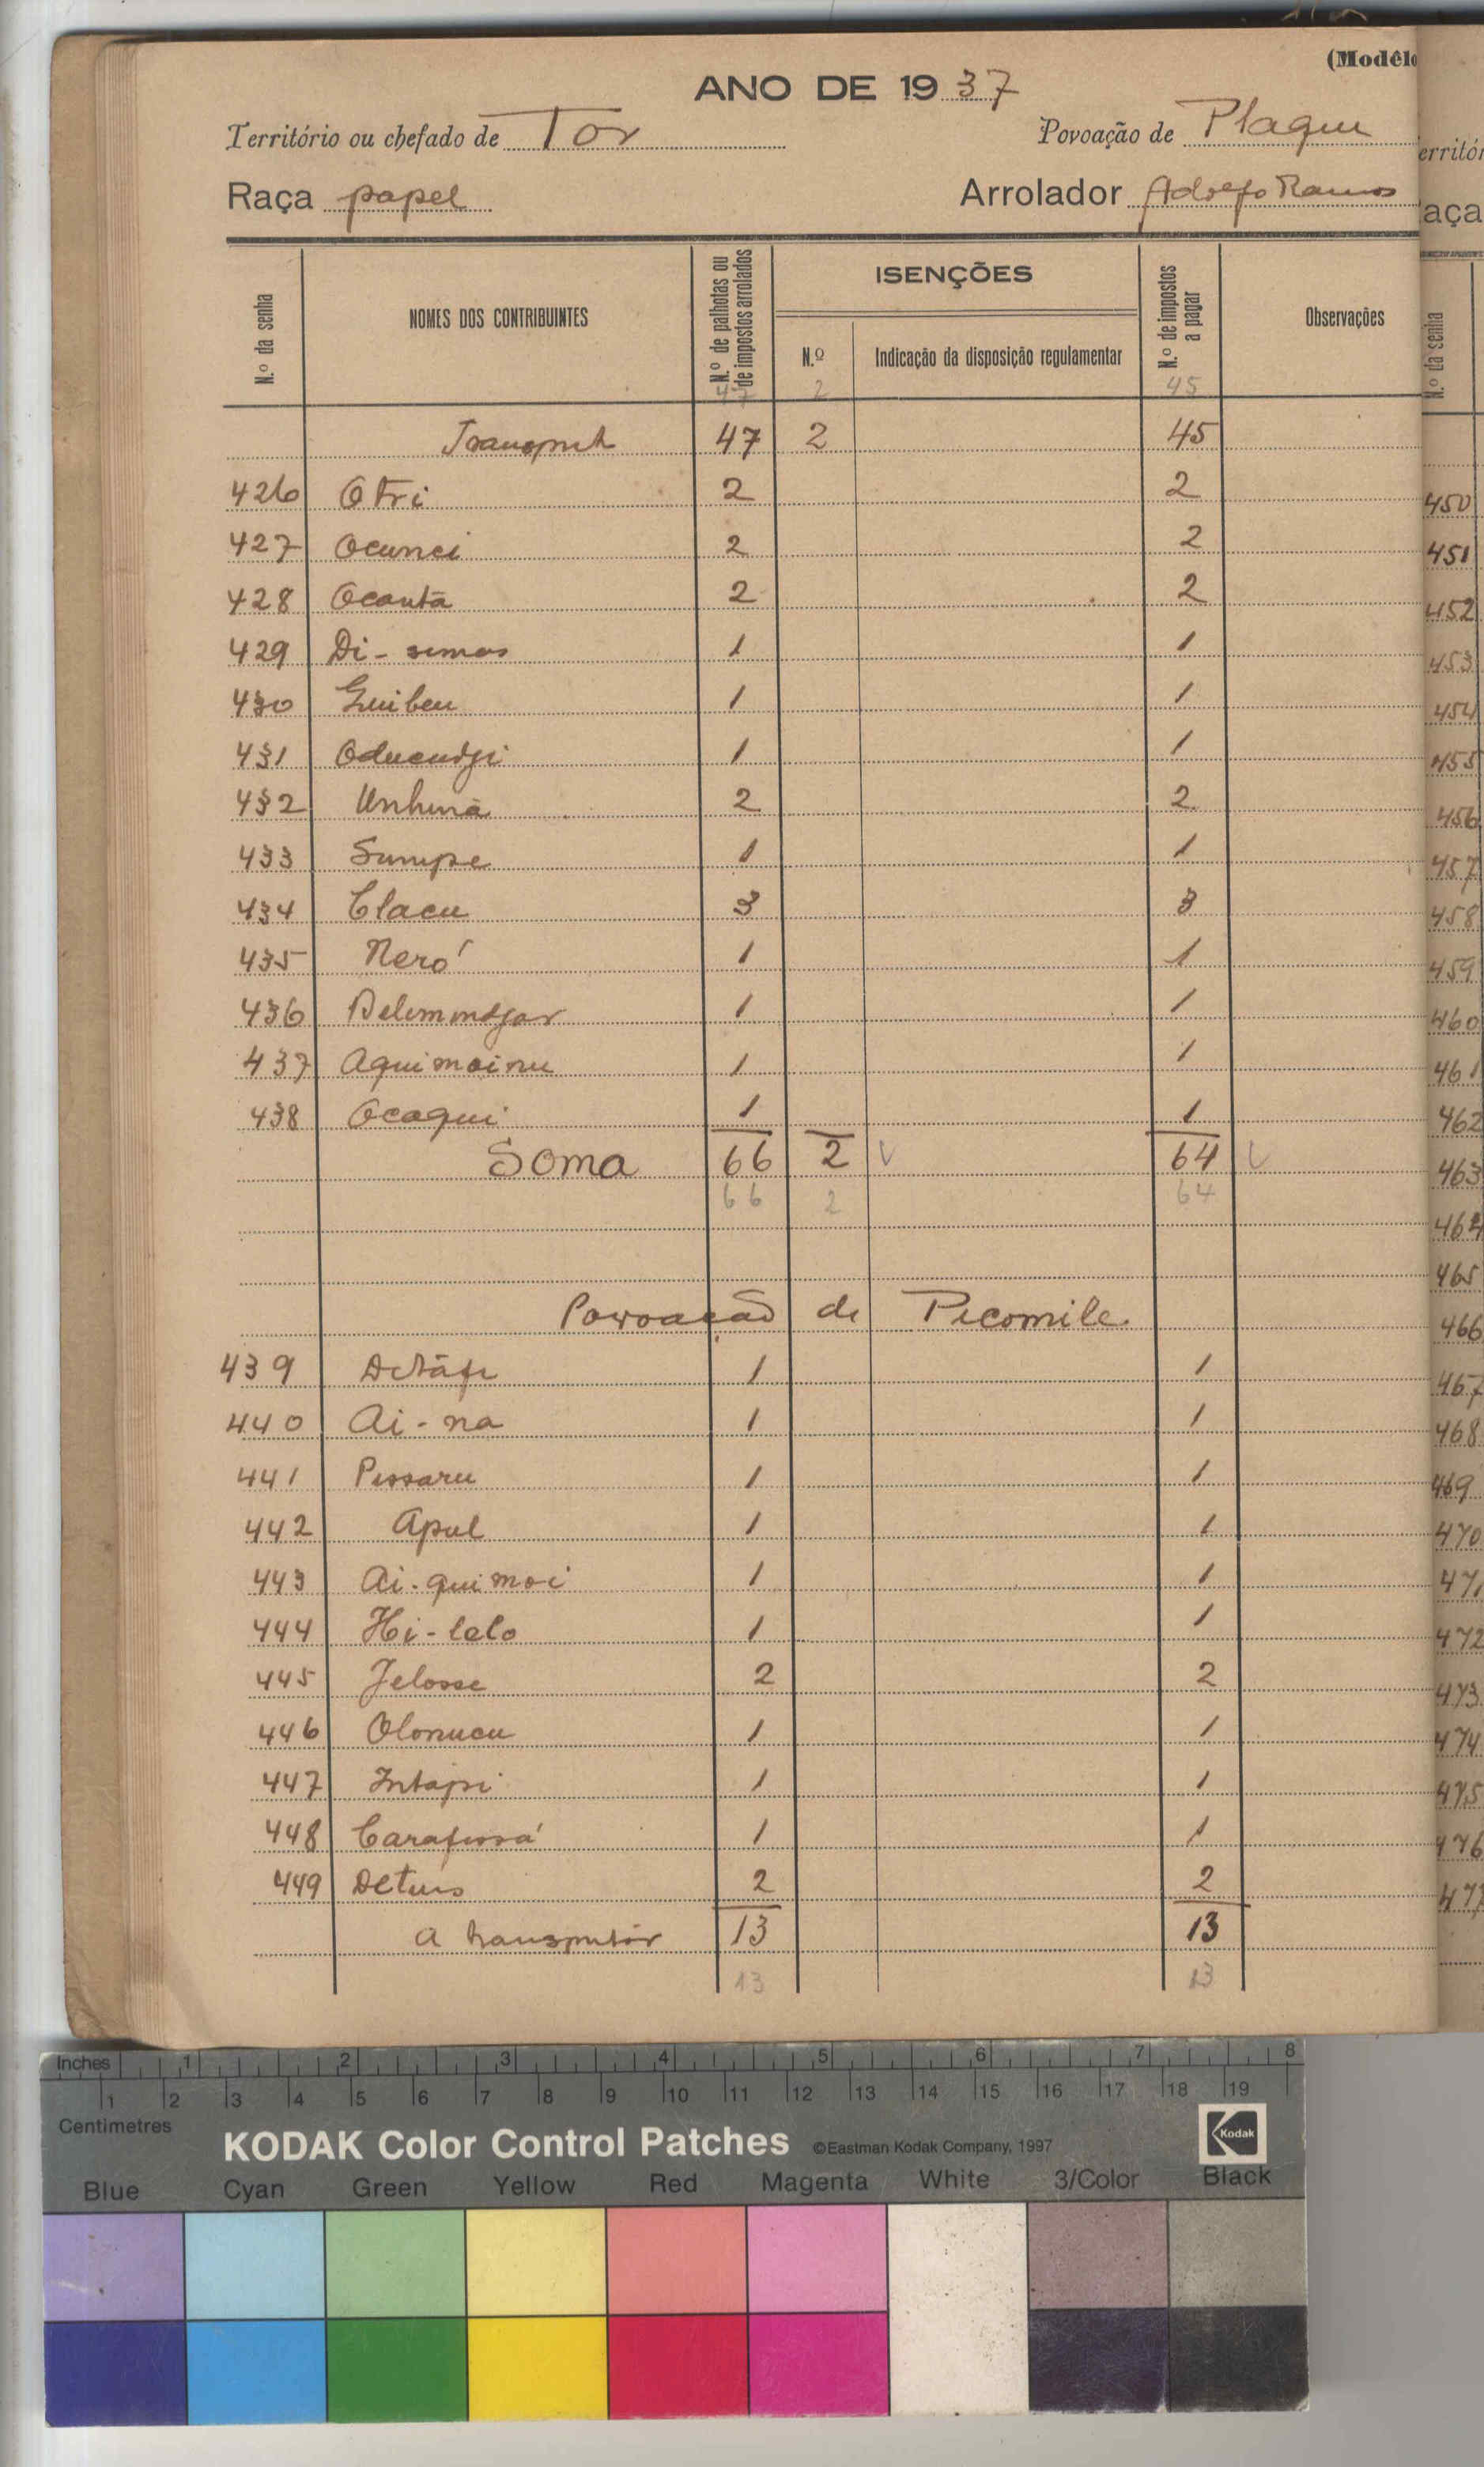 (Modêlo
ANO DE 1937
Território ou chefado de Tor Povoação de Plaqui
Raça papel Arrolador Adolfo Ramos
N.º da senha
NOMES DOS CONTRIBUINTES
N.º de palhotas ou de impostos arrolados
ISENÇÕES
N.º
Indicação da disposição regulamentar
N.º de impostos a pagar
Observações
47 2 45
Transport 47 2 45
426 Ofri 2 2
427 Ocunci 2 2
428 Ocantã 2 2
429 Di-simas 1 1
430 Guibeu 1 1
431 Oducudji 1 1
432 Unhinã 2 2
433 Sumpe 1 1
434 Clacu 3 3
435 Neró 1 1
436 1 1
437 Aquimoinu 1 1
438 Ocaqui 1 1
Soma 66 2 64
66 2 64
Povoação de Picomile
439 1 1
440 Ai-na 1 1
441 Pissaru 1 1
442 Apul 1 1
443 Ai-quimoi 1 1
444 Hi-lelo 1 1
445 Jelosse 2 2
446 Olonucu 1 1
447 Intapi 1 1
448 1 1
449 2 2
A transportar 13 13
13 13
erritór
aça
N.º da senha
450
451
452
453
454
455
456
457
458
459
460
461
462
463
464
465
466
467
468
469
470
471
472
473
474
475
476
477
Inches 1 2 3 4 5 6 7 8
1 2 3 4 5 6 7 8 9 10 11 12 13 14 15 16 17 18 19
Centimetres
KODAK Color Control Patches ©Eastman Kodak Company, 1997 Kodak
Blue Cyan Green Yellow Red Magenta White 3/Color Black